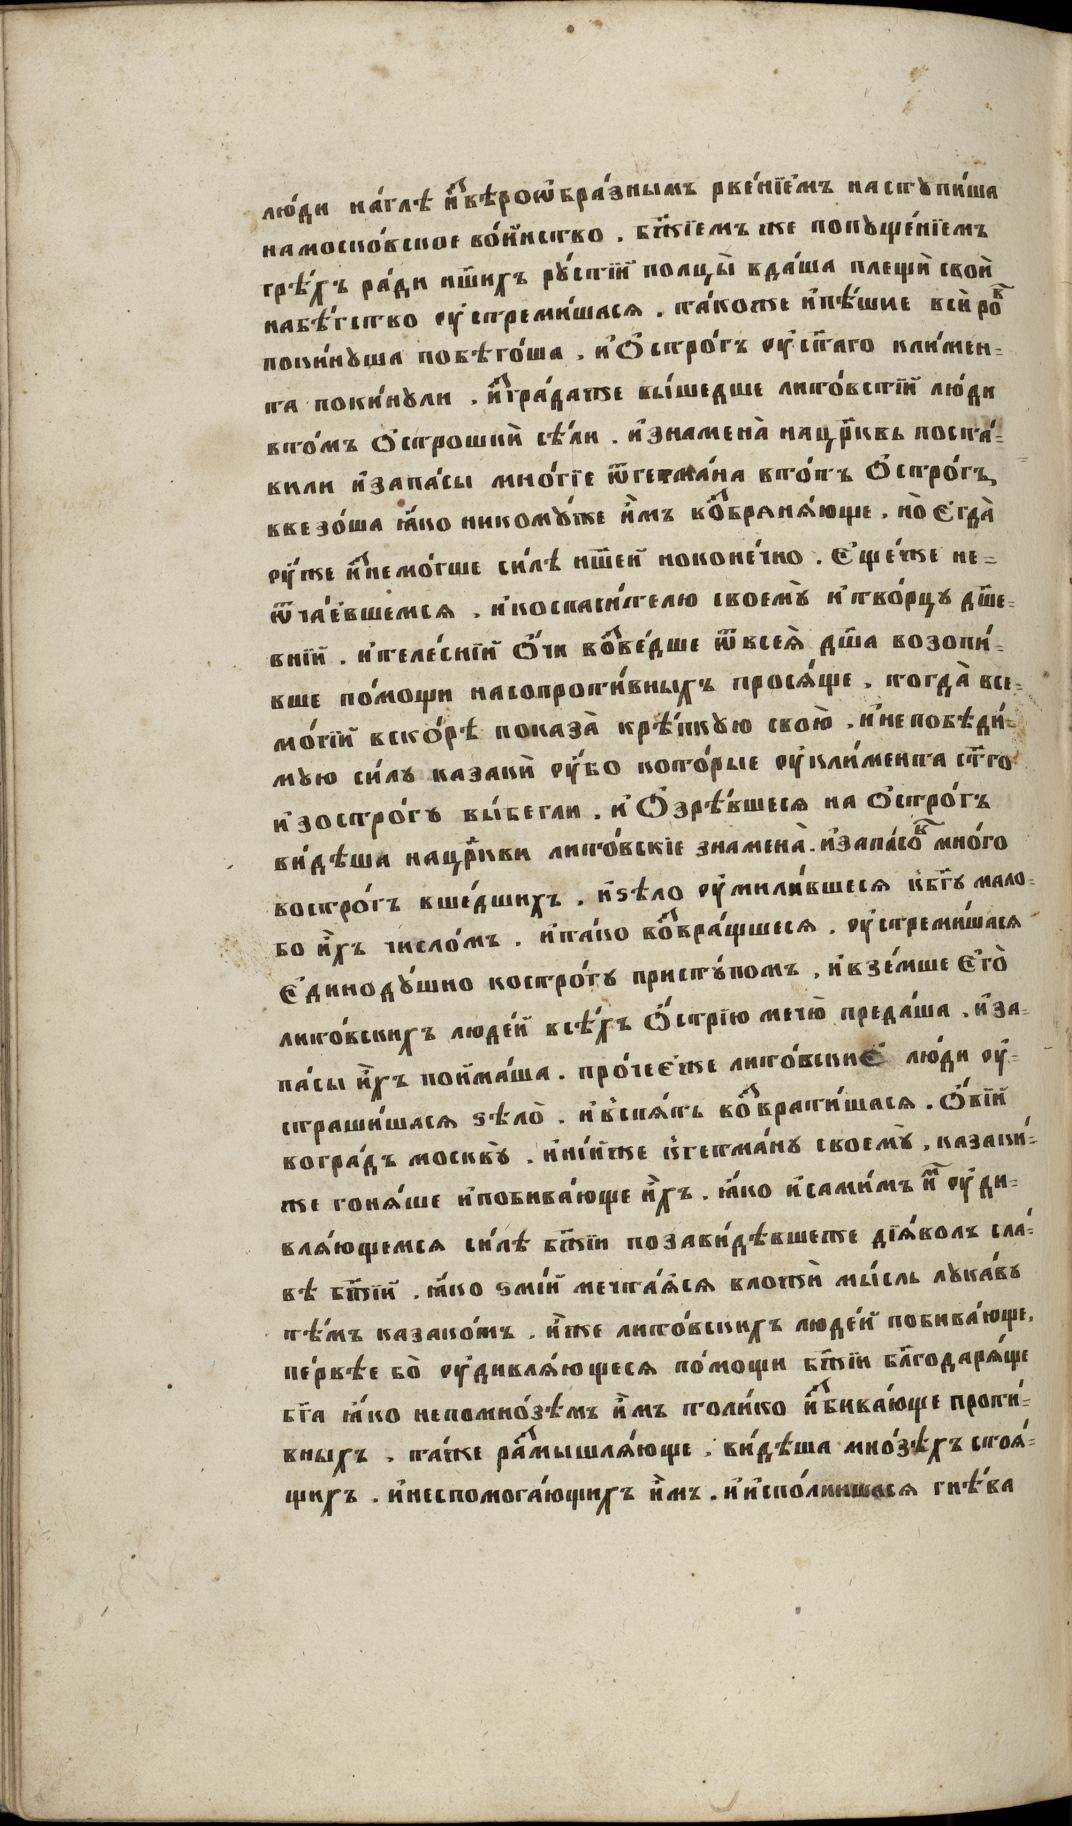 лю́ди на́глѣ и҆звѣроѡбра́знымъ рве́нїемъ наступи́ша
намоско́вское во́инство . бж҃їемъ же попуще́нїемъ
грѣ́хъ ра́ди нш҃ихъ ру́стїи полцы̀ вда́ша плещѝ своѝ
набѣ́гство оу҆стреми́шася . та́коже и҆пѣ́шие всѝ ровⷡ
поки́нуша побѣго́ша , и҆О҆стро́гъ оу҆ст҃аго кли́мен=
та поки́нули . и҆зⸯгра́даже вы́шедше лито́встїи лю́ди
вто́мъ О҆строшкѝ сѣ́ли . и҆знаменà нацр҃квь поста́=
вили и҆запа́сы мно́гїе ѿгетма́на вто́тъ О҆стро́гъ
ввезо́ша ꙗ҆́ко никому́же и҆̀мъ возбраня́юще . но̀ Е҆гда̀
оу҆́же и҆знемо́гше си́лѣ нш҃ей ноконе́чно . Е҆ще́же не=
ѿча́евшемся . и҆коспаси́телю своемꙋ̀ и҆тво́рцу дш҃е=
внїи . и҆теле́снїи О҆́чи возве́дше ѿвсея̀ дш҃а возопи́=
вше по́мощи насопроти́вныхъ прося́ще , тогда̀ все=
мо́гїй вско́рѣ показа̀ крѣ́пкую свою̀ , и҆непобѣди́=
мую си́лу казакѝ оу҆́бо кото́рые оу҆кли́мента ст҃го
и҆зостро́гу вы́бегли . и҆О҆зрѣ́вшеся на О҆стро́гъ
ви́дѣша нацр҃кви лито́вскїе знаменà . и҆запа́совⷡ мно́го
востро́гъ вше́дшихъ . и҆ѕѣло оу҆мили́вшеся кбг҃у мало=
бо и҆́хъ число́мъ . и҆та́ко возвра́щшеся . оу҆стреми́шася
Е҆диноду́шно костро́гу присту́помъ , и҆взе́мше Е҆го̀
лито́вскихъ люде́й всѣ́хъ О҆́стрїю мечю̀ преда́ша . и҆за=
па́сы и҆́хъ пойма́ша . про́чеЕ҆же лито́вскиЕ҆ лю́ди оу҆=
страши́шася ѕѣло̀ . и҆вспя́ть возврати́шася . О҆́вїи
вогра́дъ москвꙋ̀ . и҆нїи́же кгетма́ну своемꙋ̀ , казаки́=
же гоня́ше и҆побива́юще и҆́хъ . ꙗ҆́ко и҆сами́мъ и҆мⷨ оу҆ди=
вля́ющемся си́лѣ бж҃їи позави́дѣвшеже дїя́волъ сла́=
вѣ бж҃їй . ꙗ҆́ко ѕмі́й мечта́яся вложѝ мы́сль лука́ву
тѣ́мъ казако́мъ . и҆́же лито́вскихъ люде́й побива́юще ,
пе́рвѣе бо̀ оу҆дивля́ющеся по́мощи бж҃їи бл҃годаря́ще
бг҃а ꙗ҆́ко непомно́зѣмъ и҆̀мъ толи́ко и҆збива́юще проти́=
вныхъ . та́же размышля́юще . ви́дѣша мно́зѣхъ стоя́=
щихъ . и҆неспомога́ющихъ и҆̀мъ . и҆и҆спо́лнишася гнѣ́ва